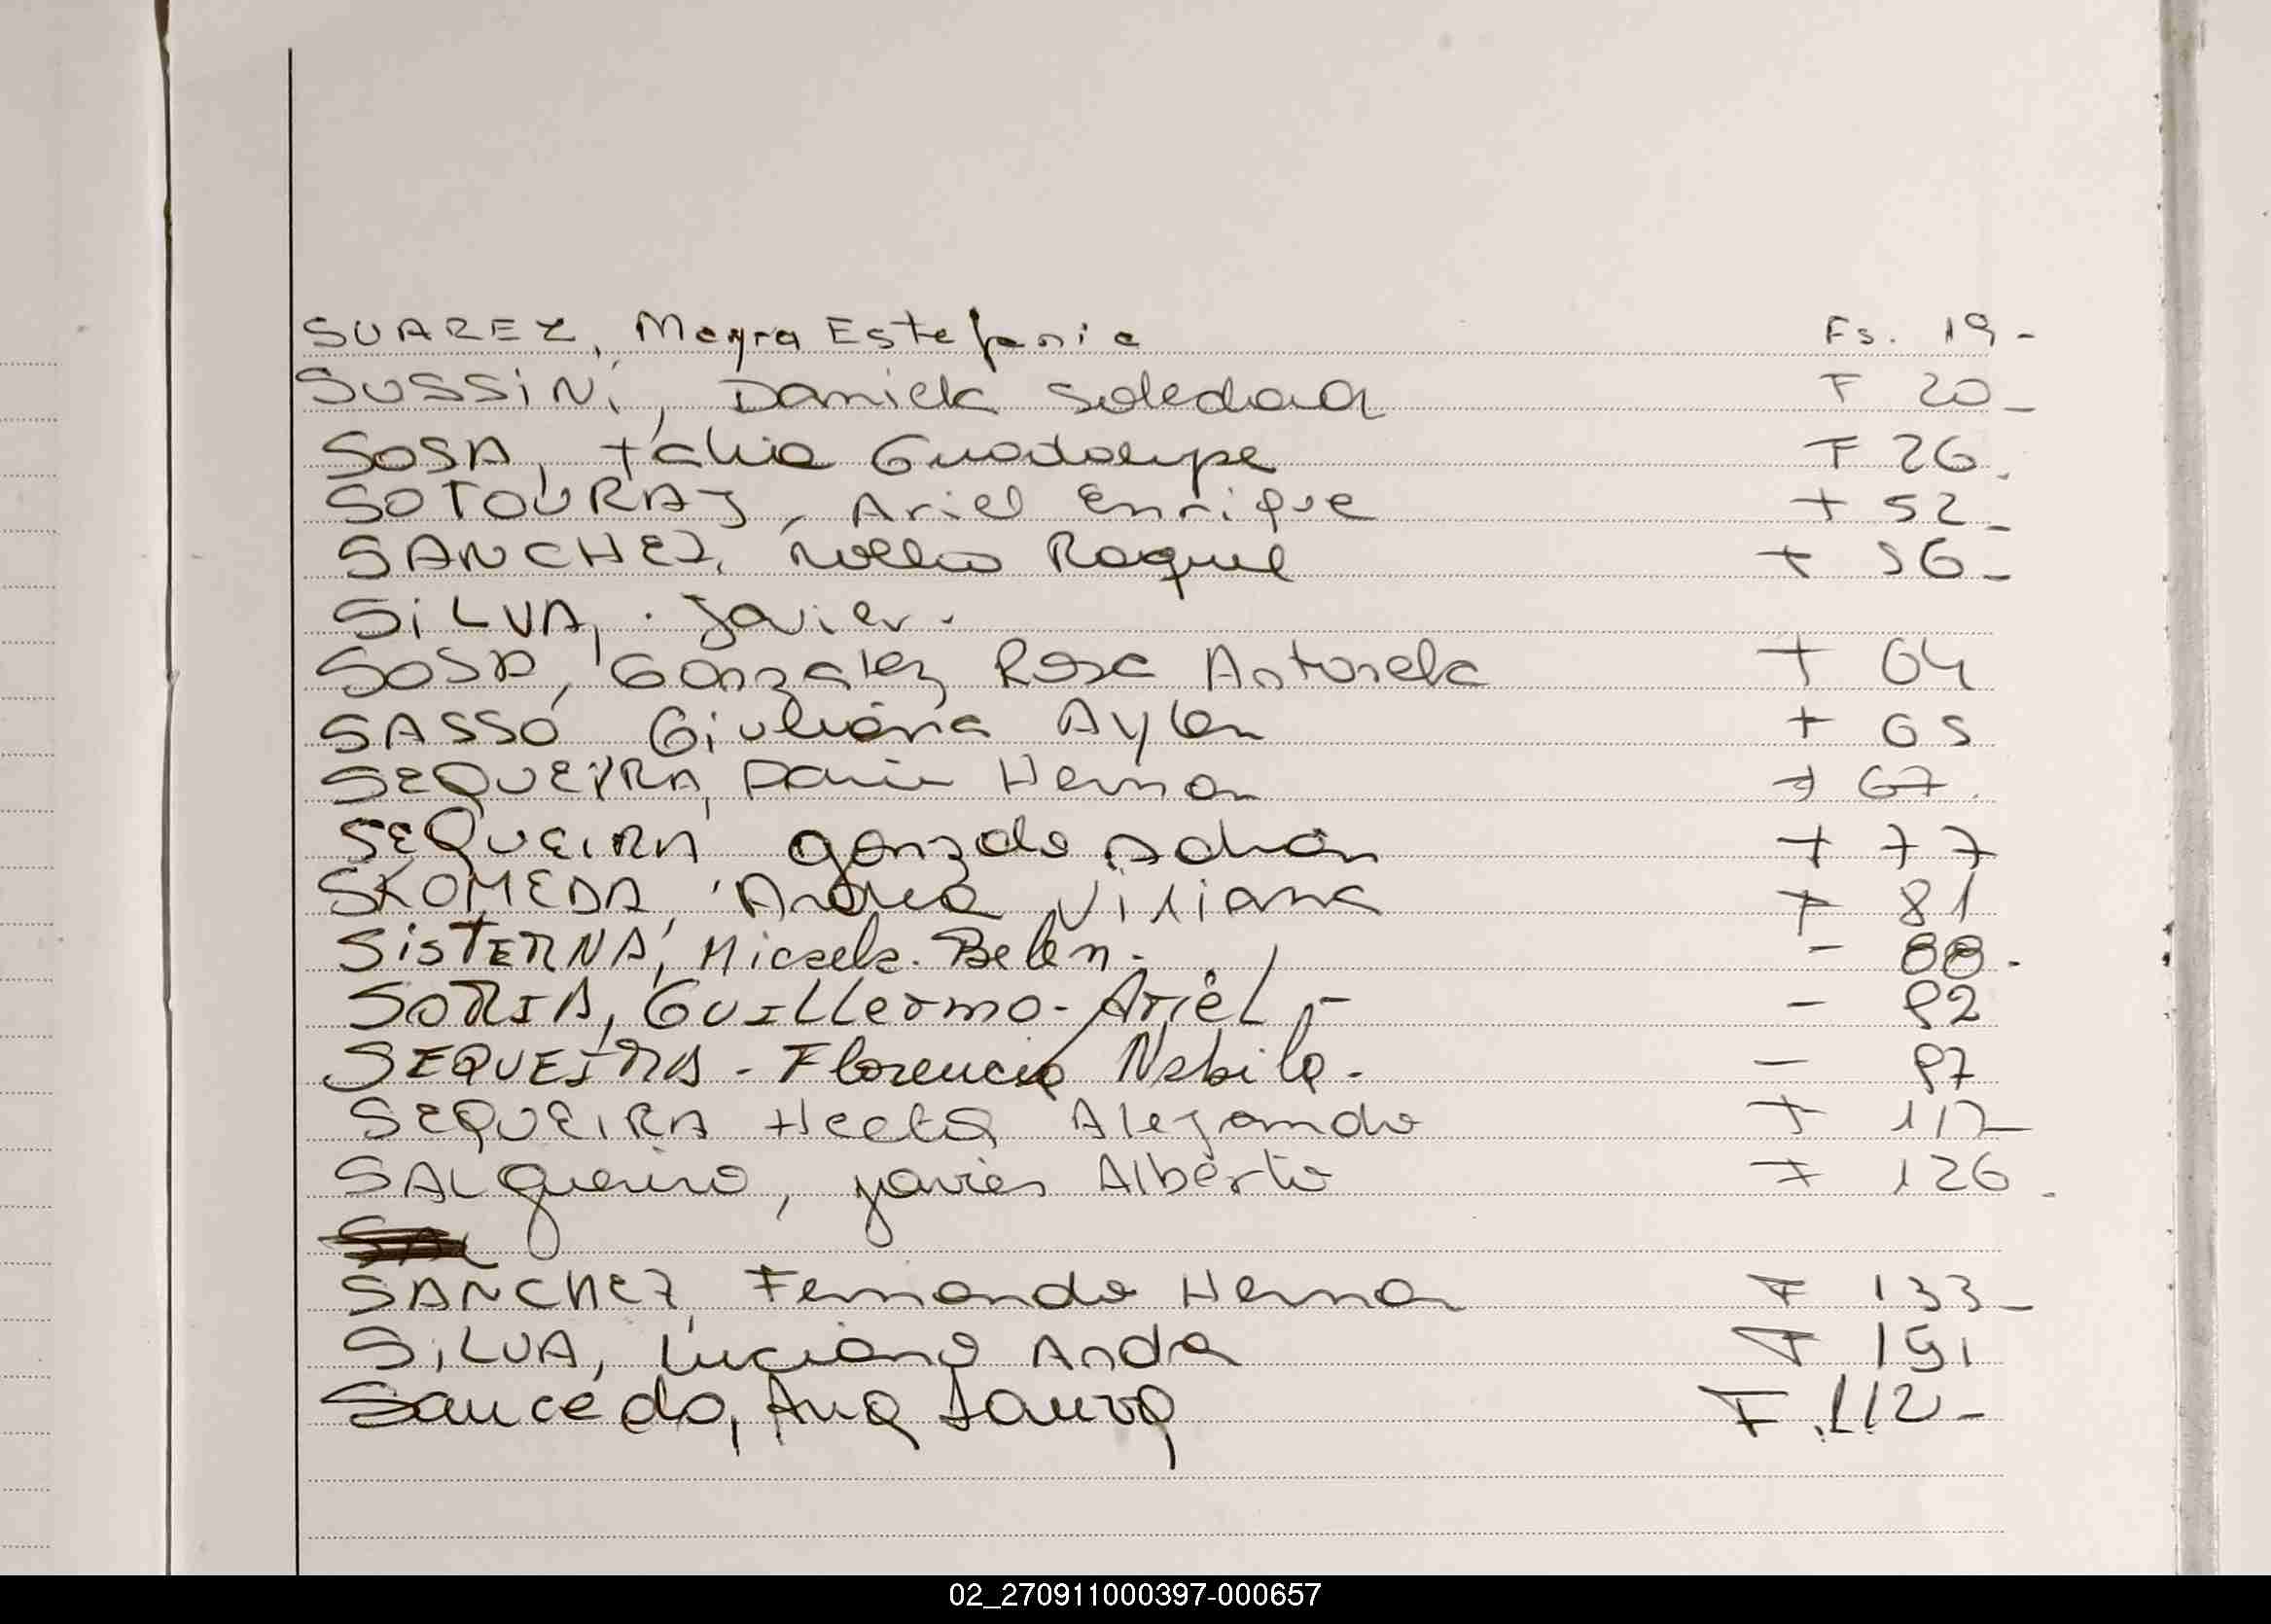 SUAREZ, Mayra Estefania Fs. 19-
SUSSINI, Daniela Soledad F 20-
SOSA, Talia Guadalupe F 26.
SOTOURAJ, Ariel Enrique F 52-
SANCHEZ, Raquel F 56-
SILVA, Javier.
SOSA, Gonzalez Rosa Antonela F 64
SASSO Giuliana Aylen F 65
SEQUEYRA, Dario Hernan F 67.
SEQUEIRA Gonzalo Adrian F 77
SKOMEDA, Andrea Viviana F 81
SISTERNA, Micaela. Belen. - 88.
SORIA, Guillermo-Ariel,- - 92
SEQUEIRA - Florencia Nabila. - 97
SEQUEIRA Hector Alejandro F 112-
SALgueiro, Javier Alberto F 126.
SANCHEZ, Fernando Hernan F 133-
SILVA, Luciano F 151
Saucedo, Ana Laura F.112-
02_270911000397-000657